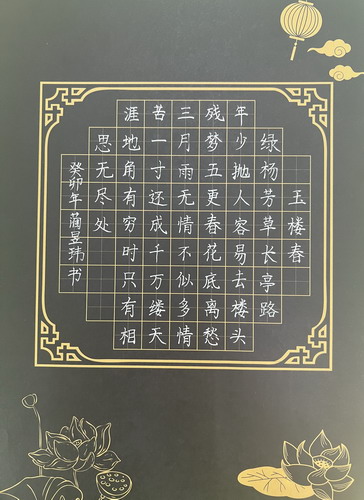 玉楼春
绿杨芳草长亭路
年少抛人容易去楼头
残梦五更春花底离愁
三月雨无情不似多情
苦一寸还成千万缕天
涯地角有穷时只有相
思无尽处
癸卯年蔺昱玮书